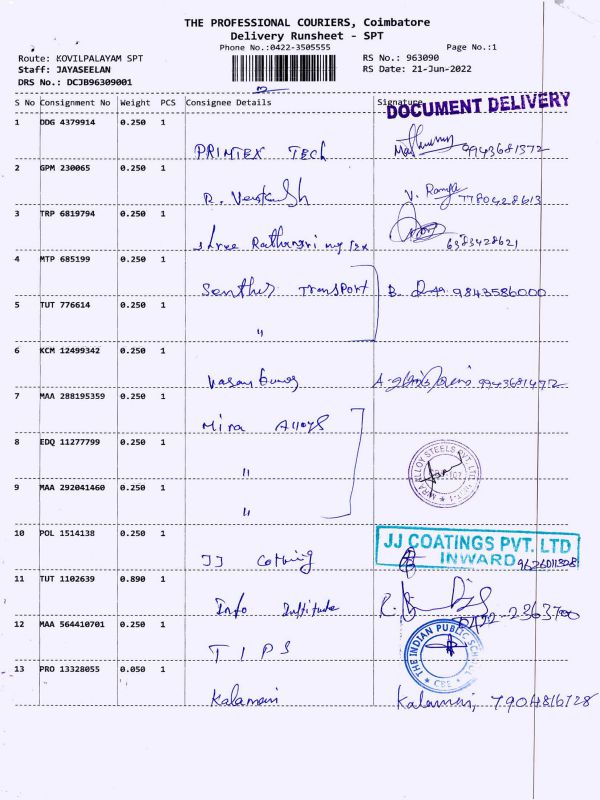 THE PROFESSIONAL COURIERS, Coimbatore
Delivery Runsheet - SPT
Phone No.:0422-3505555 Page No.:1
Route: KOVILPALAYAM SPT RS No.: 963090
Staff: JAYASEELAN RS Date: 21-Jun-2022
DRS No.: DCJB96309001
S No Consignment No Weight PCS Consignee Details Signature
DOCUMENT DELIVERY
1 DDG 4379914 0.250 1
PRINTEX TECH 9943681372
2 GPM 230065 0.250 1
R. Venkatesh V. Ramya 7780428613
3 TRP 6819794 0.250 1
Shree 6383428621
4 MTP 685199 0.250 1
Senthur TRANSPORT B. 9843586000
5 TUT 776614 0.250 1
"
6 KCM 12499342 0.250 1
9943681472
7 MAA 288195359 0.250 1
Mira Alloys
8 EDQ 11277799 0.250 1
"
MIRA ALLOY STEELS PVT. LTD.
9 MAA 292041460 0.250 1
"
10 POL 1514138 0.250 1
JJ COATINGS PVT. LTD
INWARD
JJ Coating
11 TUT 1102639 0.890 1
Info Institute 0422-2363700
12 MAA 564410701 0.250 1
THE INDIAN PUBLIC SCHOOL
CBE
T I P S
13 PRO 13328055 0.050 1
Kalamani Kalamani, 7904816728